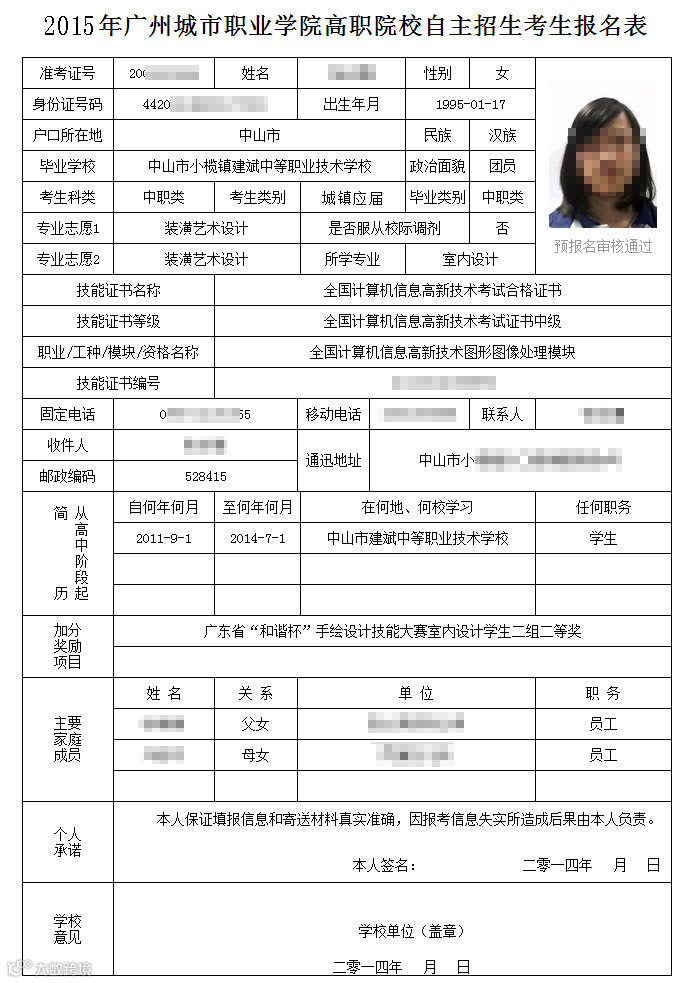 2015年广州城市职业学院高职院校自主招生考生报名表
准考证号 200 姓名 性别 女
身份证号码 4420 出生年月 1995-01-17
户口所在地 中山市 民族 汉族
毕业学校 中山市小榄镇建斌中等职业技术学校 政治面貌 团员
考生科类 中职类 考生类别 城镇应届 毕业类别 中职类
专业志愿1 装潢艺术设计 是否服从校际调剂 否
预报名审核通过
专业志愿2 装潢艺术设计 所学专业 室内设计
技能证书名称 全国计算机信息高新技术考试合格证书
技能证书等级 全国计算机信息高新技术考试证书中级
职业/工种/模块/资格名称 全国计算机信息高新技术图形图像处理模块
技能证书编号
固定电话 0 55 移动电话 联系人
收件人 通迅地址 中山市小
邮政编码 528415
简历 从高中阶段起 自何年何月 至何年何月 在何地、何校学习 任何职务
2011-9-1 2014-7-1 中山市建斌中等职业技术学校 学生
加分奖励项目 广东省“和谐杯”手绘设计技能大赛室内设计学生二组二等奖
主要家庭成员 姓 名 关 系 单 位 职 务
父女 员工
母女 员工
个人承诺 本人保证填报信息和寄送材料真实准确，因报考信息失实所造成后果由本人负责。
本人签名： 二零一四年 月 日
学校意见 学校单位（盖章）
二零一四年 月 日
大数跨境